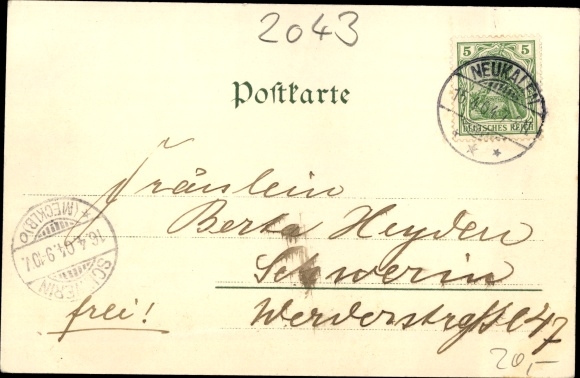 2043
5 5
NEUKALEN
DEUTSCHES REICH
Postkarte
Fräulein
Berta Heyden
Schwerin
Werderstraße 47
frei!
SCHWERIN
16.4.04. 9-10V.
(MECKLB)
20,-